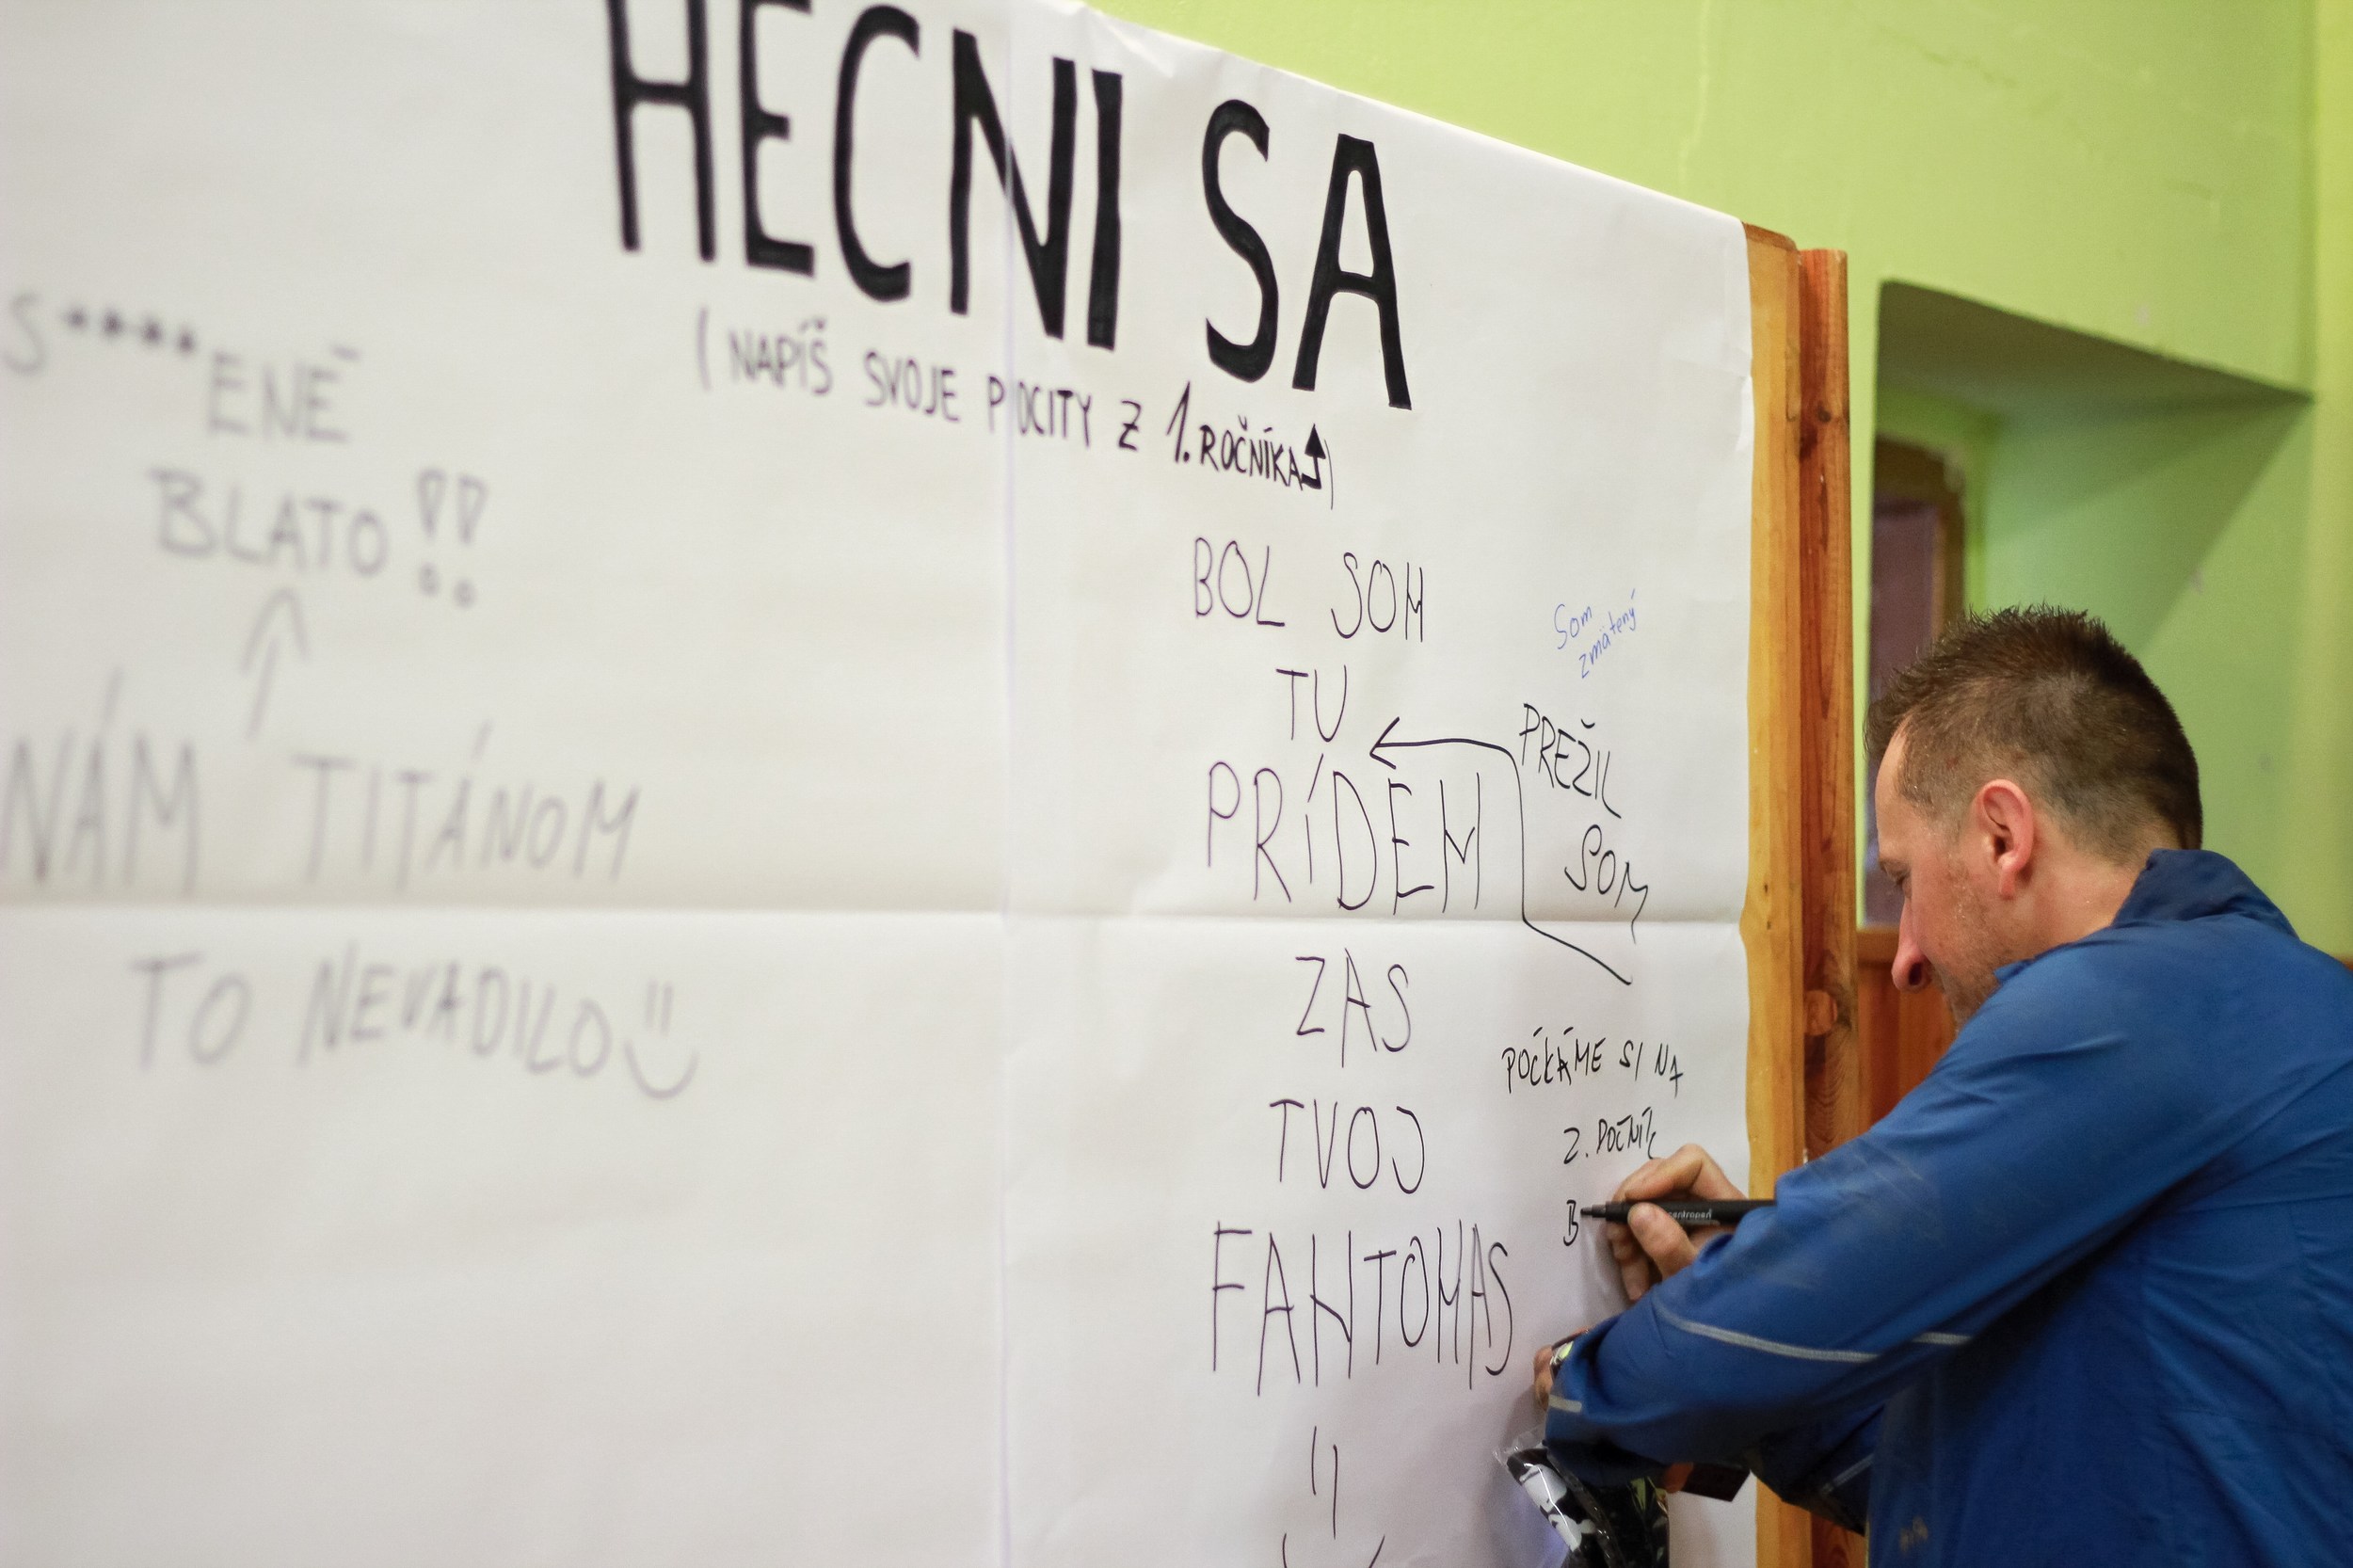 HECNI SA
( NAPÍŠ SVOJE POCITY Z 1. ROČNÍKA )
S****ENÉ
BLATO !!
NÁM TITÁNOM
TO NEVADILO
BOL SOM
TU
PRÍDEM
ZAS
TVOJ
FANTOMAS
Som
zmätený
PREŽIL
SOM
POČKÁME SI NA
2. ROČNÍK
B
centropen